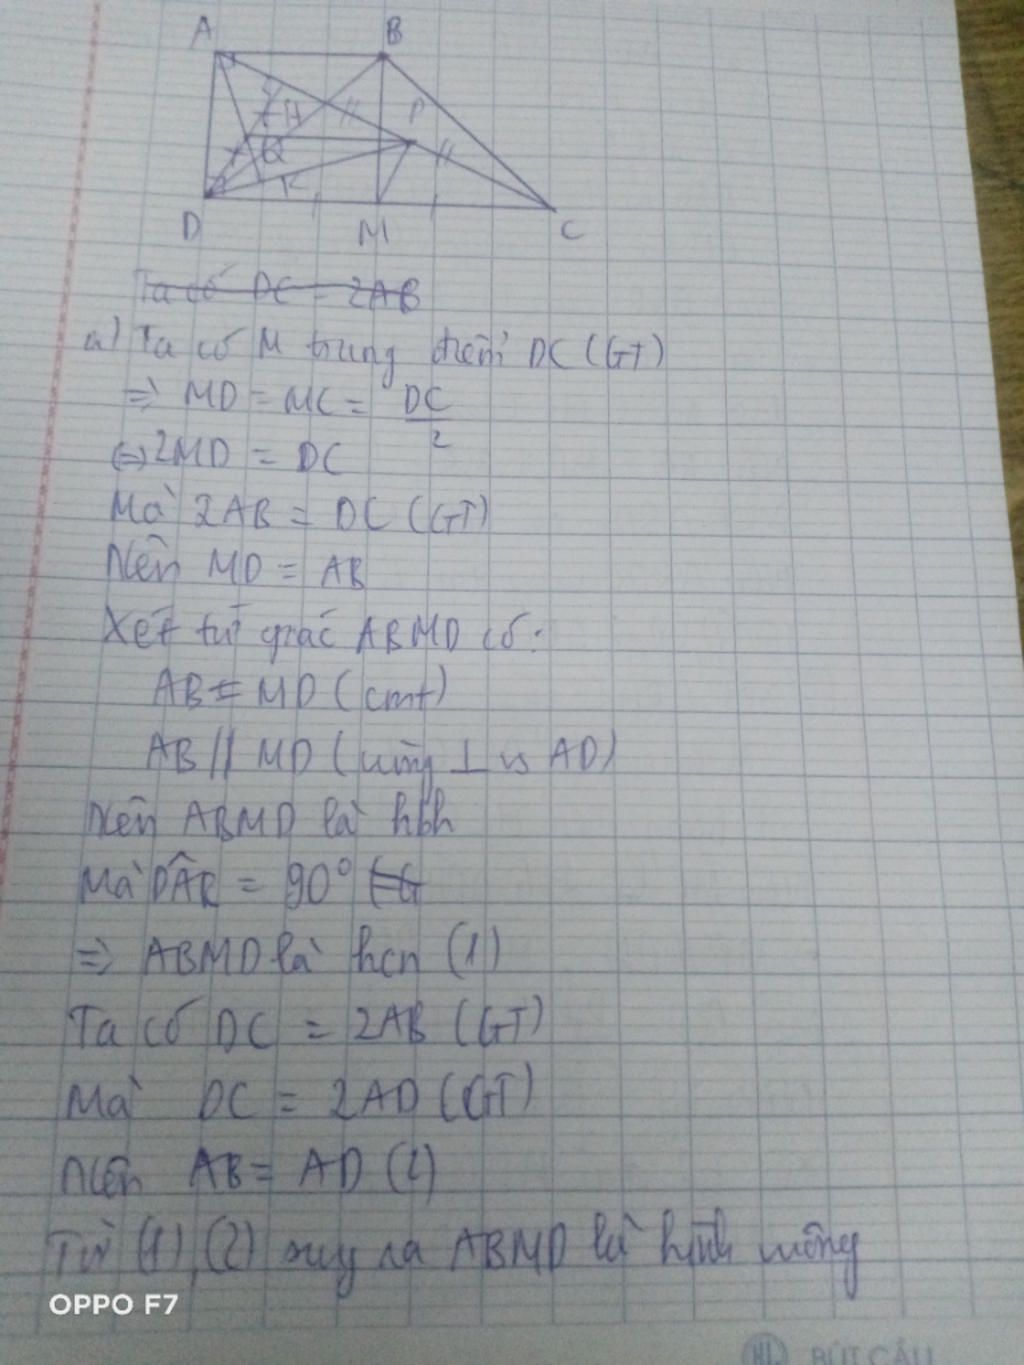 A B
H P
Q
K
D M C
Ta có DC = 2AB
a) Ta có M trung điểm DC (GT)
=> MD = MC = DC/2
<=> 2MD = DC
Mà 2AB = DC (GT)
Nên MD = AB
Xét tứ giác ABMD có:
AB = MD (cmt)
AB // MD (cùng ⊥ vs AD)
Nên ABMD là hbh
Mà DÂB = 90° (G
=> ABMD là hcn (1)
Ta có DC = 2AB (GT)
Mà DC = 2AD (GT)
Nên AB = AD (2)
Từ (1), (2) suy ra ABMD là hình vuông
OPPO F7
BÚT